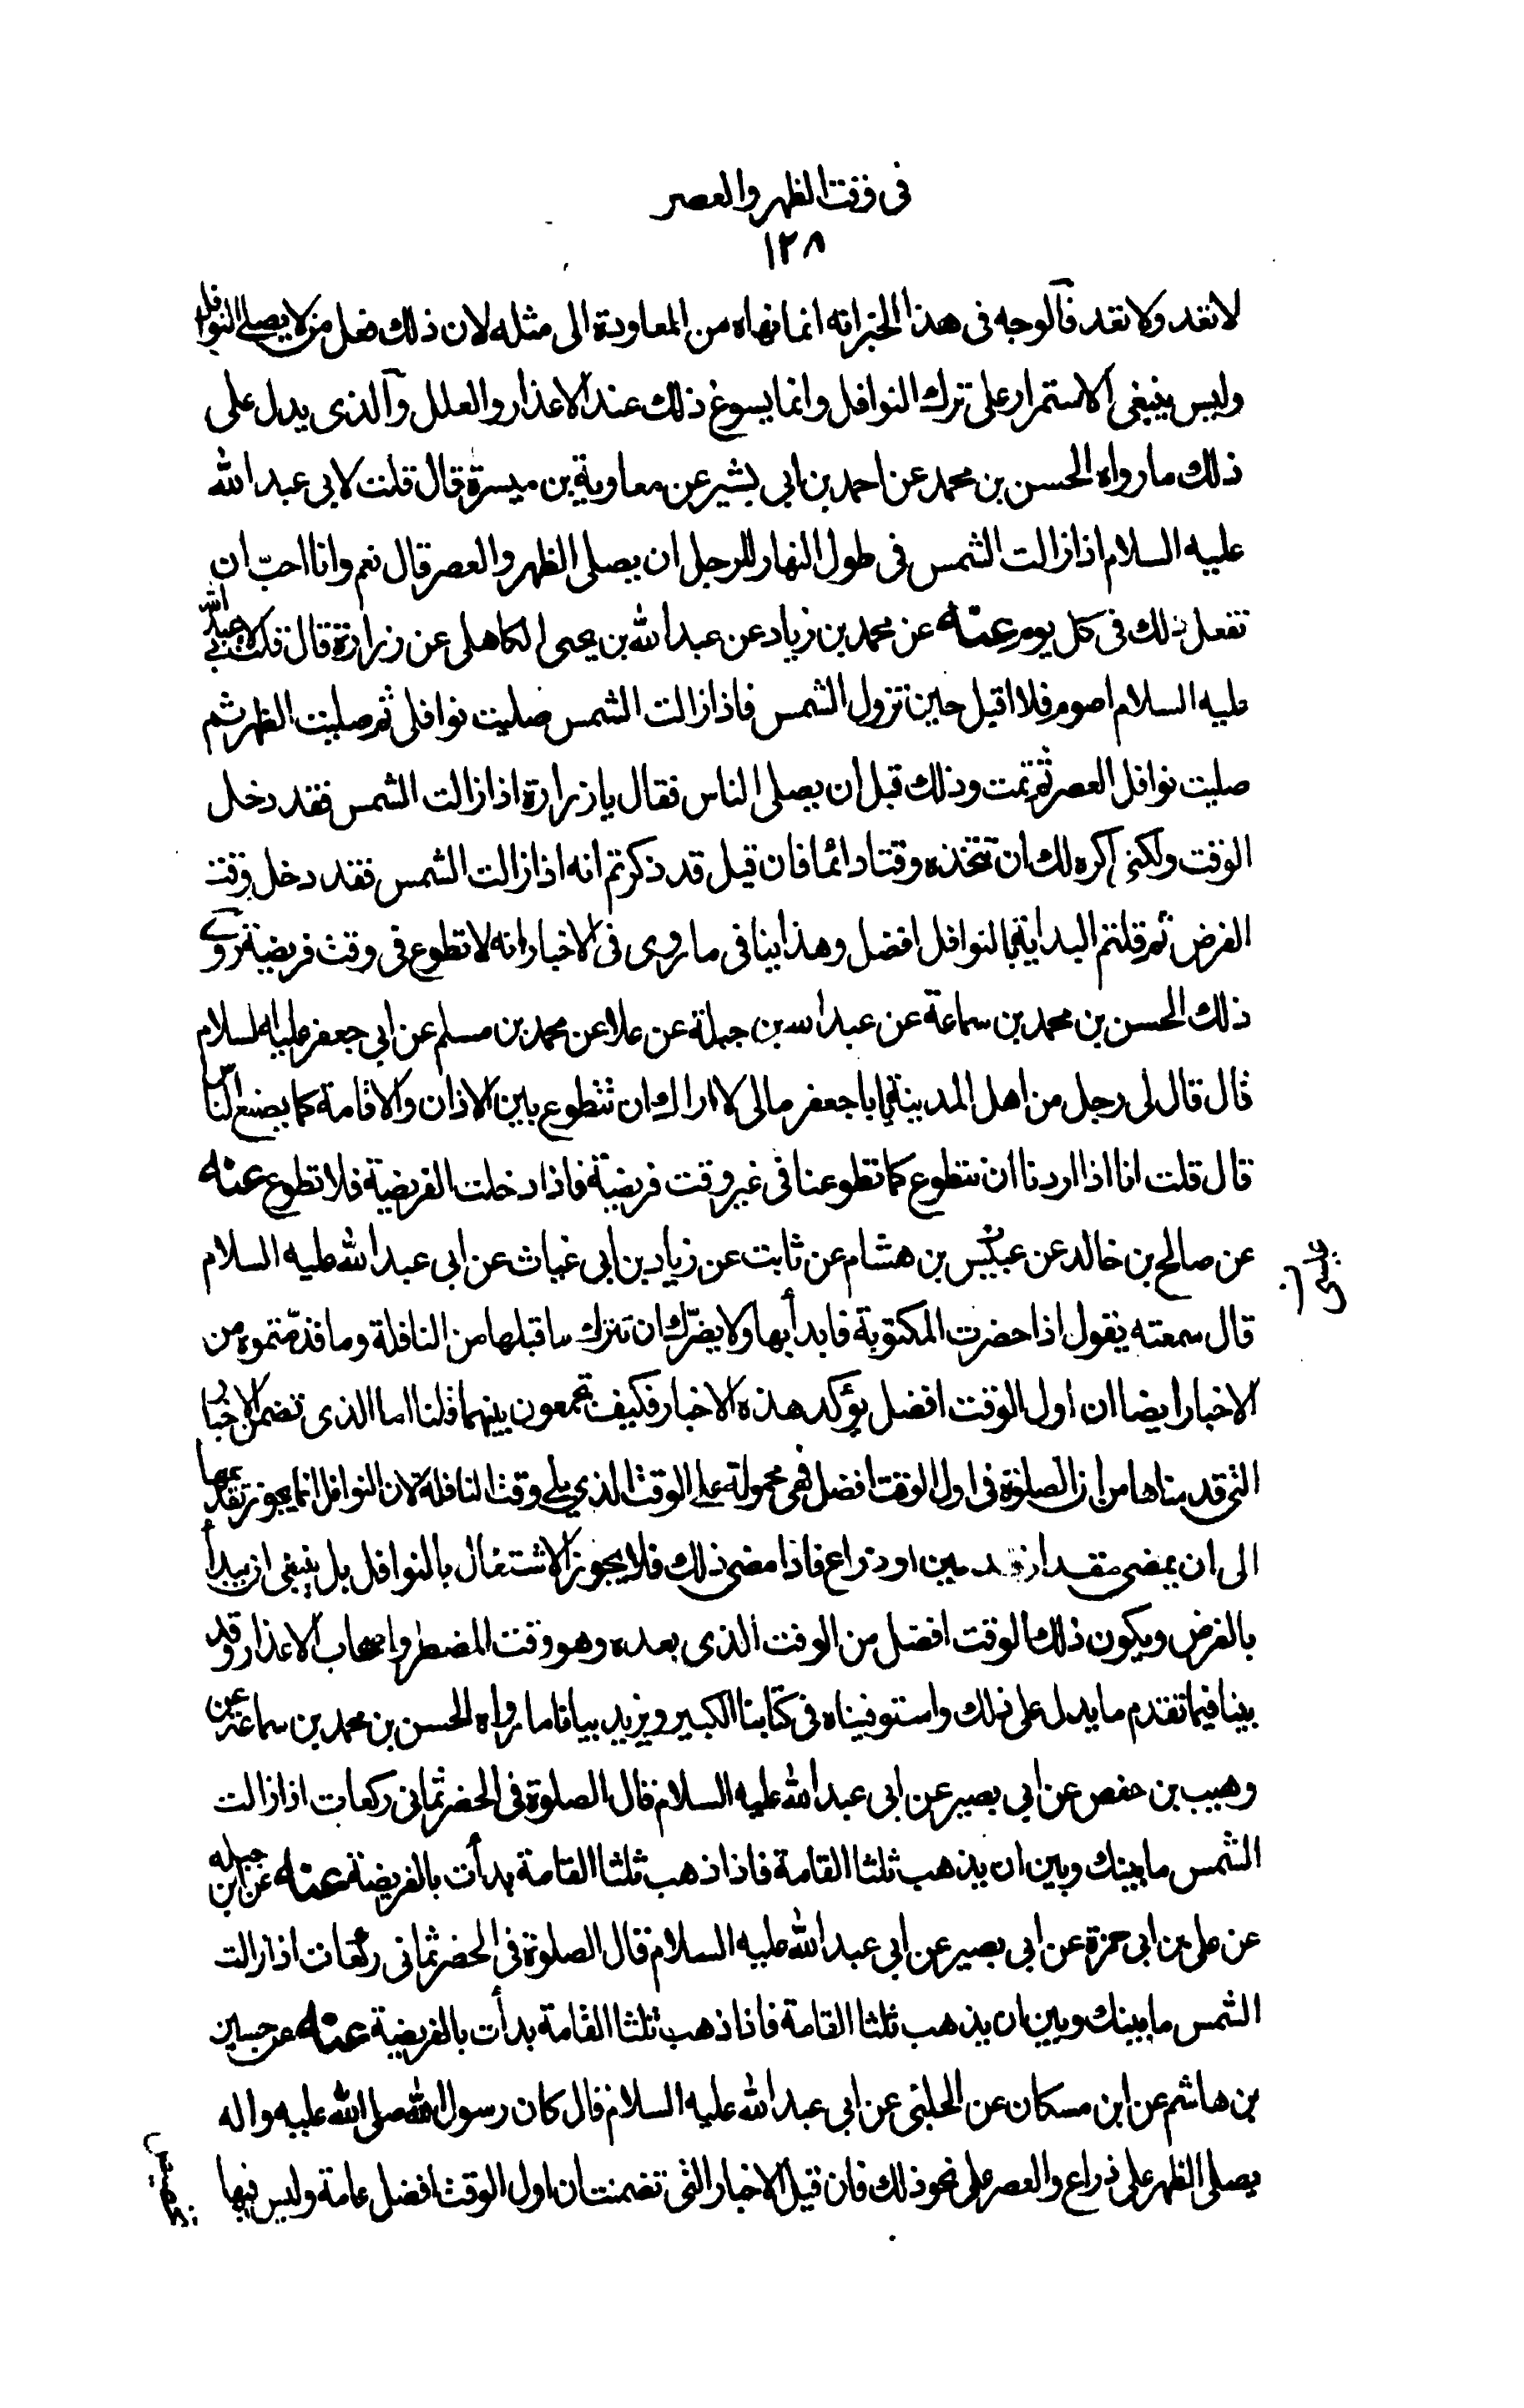 فى وقت الظهر والعصر
١٢٨
لا تعد ولا تعد فالوجه فى هذا الخبر انه انما نهاه من المعاودة الى مثله لان ذلك فعل من لا يصلى النوافل
وليس ينبغى الاستمرار على ترك النوافل وانما يسوغ ذلك عند الاعذار والعلل والذى يدل على
ذلك ما رواه الحسن بن محمد عن احمد بن ابى بشير عن معاوية بن ميسرة قال قلت لابى عبد الله
عليه السلام اذا زالت الشمس فى طول النهار للرجل ان يصلى الظهر والعصر قال نعم وانا احبّ ان
تفعل ذلك فى كل يوم عنه عن محمد بن زياد عن عبد الله بن يحيى الكاهلى عن زرارة قال قلت لابى عبد الله
عليه السلام اصوم فلا اقيل حين تزول الشمس فاذا زالت الشمس صليت نوافلى ثم صليت الظهر ثم
صليت نوافل العصر ثم نمت وذلك قبل ان يصلى الناس فقال يا زرارة اذا زالت الشمس فقد دخل
الوقت ولكنى اكره لك ان تتخذه وقتا دائما فان قيل قد ذكرتم انه اذا زالت الشمس فقد دخل وقت
الفرض ثم قلتم البداية بالنوافل افضل وهذا ينافى ما روى فى الاخبار انه لا تطوع فى وقت فريضة روى
ذلك الحسن بن محمد بن سماعة عن عبد الله بن جبلة عن علا عن محمد بن مسلم عن ابى جعفر عليه السلام
قال قال لى رجل من اهل المدينة يا ابا جعفر مالى لا اراك ان تتطوع بين الاذان والاقامة كما يصنع الناس
قال قلت انا اذا اردنا ان نتطوع كما تطوعنا فى غير وقت فريضة فاذا دخلت الفريضة فلا تطوع عنه
عن صالح بن خالد عن عبيس بن هشام عن ثابت عن زياد بن ابى غياث عن ابى عبد الله عليه السلام
قال سمعته يقول اذا حضرت المكتوبة فابدأ بها ولا يضرّك ان تترك ما قبلها من النافلة وما قدّمتموه من
الاخبار ايضا ان اول الوقت افضل يؤكد هذه الاخبار فكيف تجمعون بينهما قلنا اما الذى تضمن الاخبار
التى قدمناها من ان الصلوة فى اول الوقت افضل فهى محمولة على الوقت الذى يلى وقت النافلة لان النوافل انما يجوز تقديمها
الى ان يمضى مقدار قدمين او ذراع فاذا مضى ذلك فلا يجوز الاشتغال بالنوافل بل ينبغى ان يبدأ
بالفرض ويكون ذلك الوقت افضل من الوقت الذى بعده وهو وقت المضطر واصحاب الاعذار وقد
بينا فيما تقدم ما يدل على ذلك واستوفيناه فى كتابنا الكبير ويزيد بيانا ما رواه الحسن بن محمد بن سماعة عن
وهيب بن حفص عن ابى بصير عن ابى عبد الله عليه السلام قال الصلوة فى الحضر ثمانى ركعات اذا زالت
الشمس ما بينك وبين ان يذهب ثلثا القامة فاذا ذهب ثلثا القامة بدأت بالفريضة عنه عن ابن جبله
عن على بن ابى حمزة عن ابى بصير عن ابى عبد الله عليه السلام قال الصلوة فى الحضر ثمانى ركعات اذا زالت
الشمس ما بينك وبين ان يذهب ثلثا القامة فاذا ذهب ثلثا القامة بدأت بالفريضة عنه عن حسين
بن هاشم عن ابن مسكان عن الحلبى عن ابى عبد الله عليه السلام قال كان رسول الله صلى الله عليه واله
يصلى الظهر على ذراع والعصر على نحو ذلك فان قيل الاخبار التى تضمنت ان اول الوقت افضل عامة وليس فيها